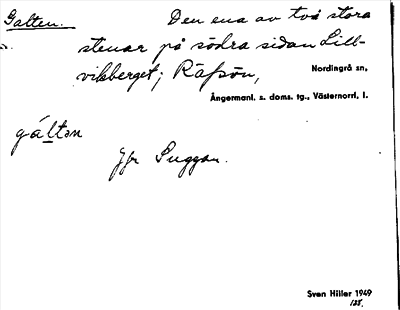 Galten. Den ena av två stora
stenar på södra sidan Lill-
vikberget; Räfsön, Nordingrå sn,
Ångermanl. s. doms. tg., Västernorrl. l.
gáltən
Jfr Suggan.
Sven Hiller 1949
125.